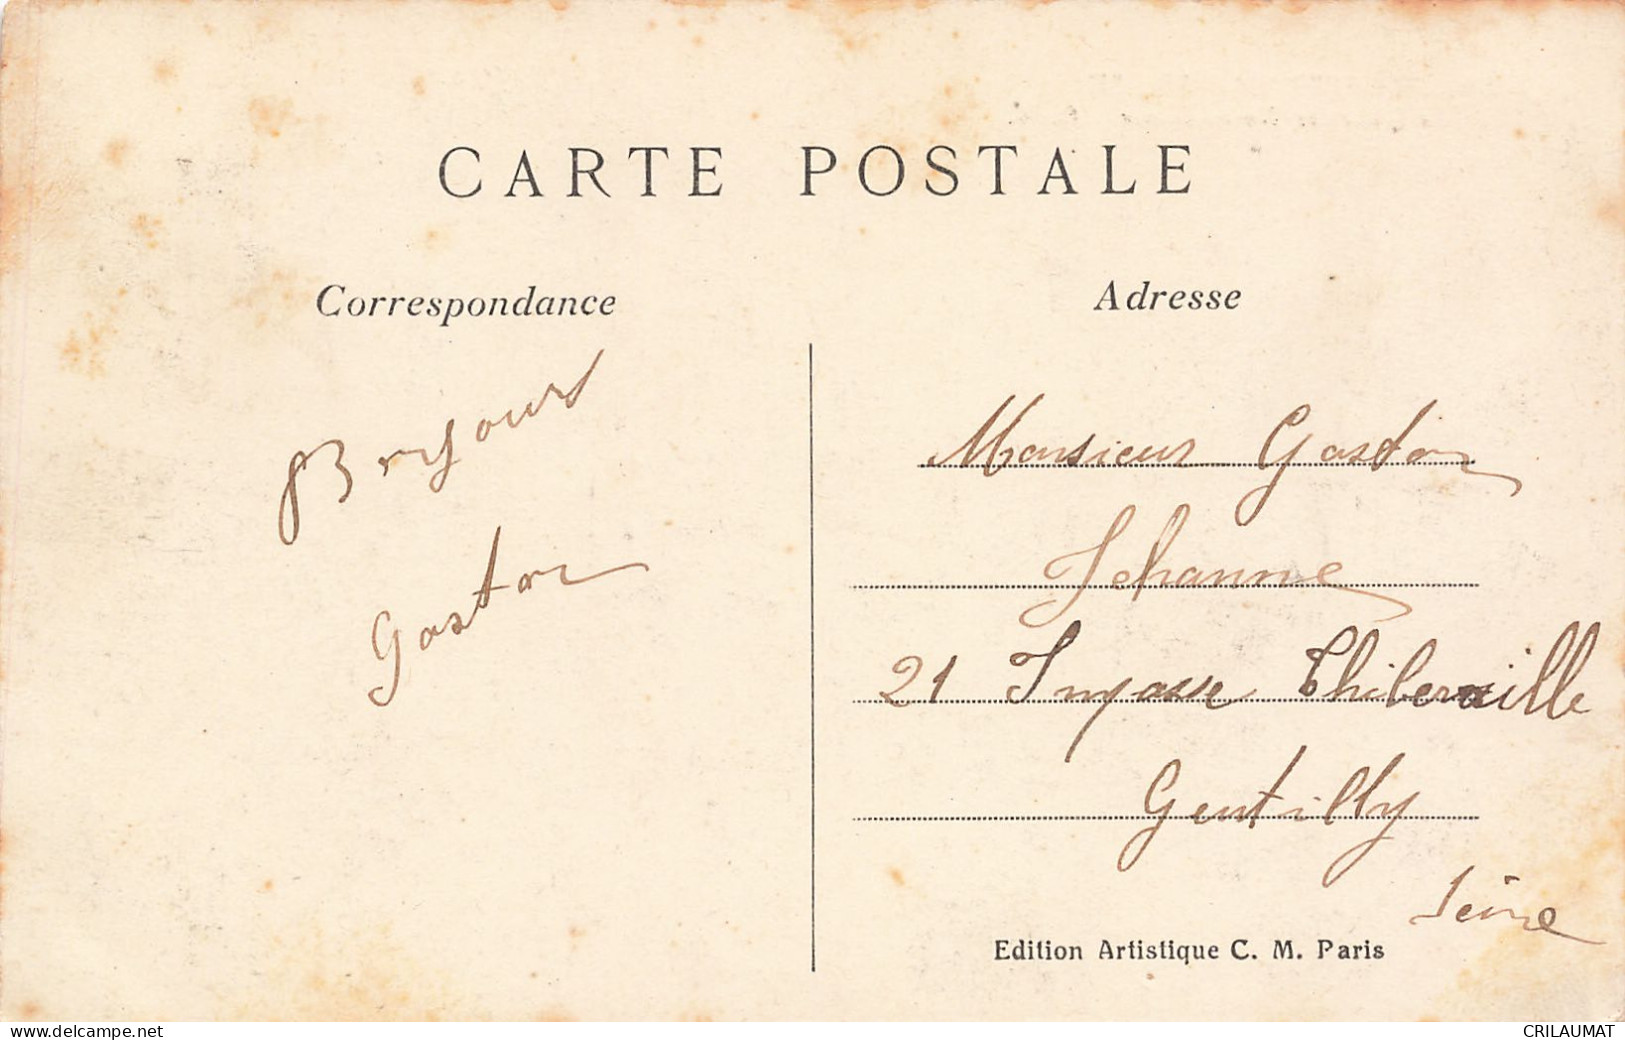 CARTE POSTALE
Correspondance
Bonjour
Gaston
Adresse
Monsieur Gaston
Jehanne
21 Impasse Thiberville
Gentilly
Seine
Edition Artistique C. M. Paris
www.delcampe.net
CRILAUMAT